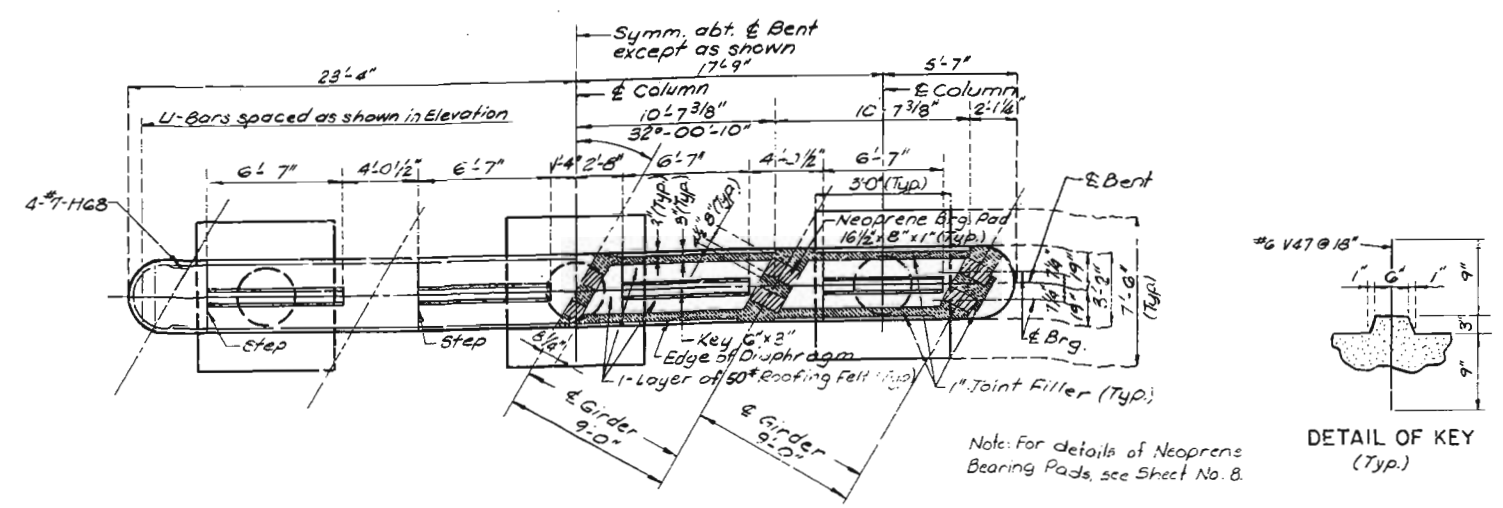 Symm. abt. ℄ Bent
except as shown
23'-4"
17'-9"
5'-7"
℄ Column
℄ Column
U-Bars spaced as shown in Elevation
10'-7 3/8"
10'-7 3/8"
2'-1 1/4"
32°-00'-10"
6'-7"
4'-0 1/2"
6'-7"
1'-4"
2'-8"
6'-7"
6'-7"
3'-0" (Typ.)
℄ Bent
4-#7-H68
2" (Typ.)
3" (Typ.)
8" (Typ.)
Neoprene Brg. Pad
16 1/2" x 8" x 1" (Typ.)
#6 V47 @ 18"
1"
6"
1"
9"
3"
9"
7 1/4"
7 1/4"
19"
19"
3'-2"
7'-6"
(Typ.)
Step
Step
8 1/4"
Key 6" x 3"
Edge of Diaphragm
1-Layer of 50# Roofing Felt (Typ.)
℄ Brg.
1" Joint Filler (Typ.)
℄ Girder
9'-0"
℄ Girder
9'-0"
Note: For details of Neoprene
Bearing Pads, see Sheet No. 8.
DETAIL OF KEY
(Typ.)